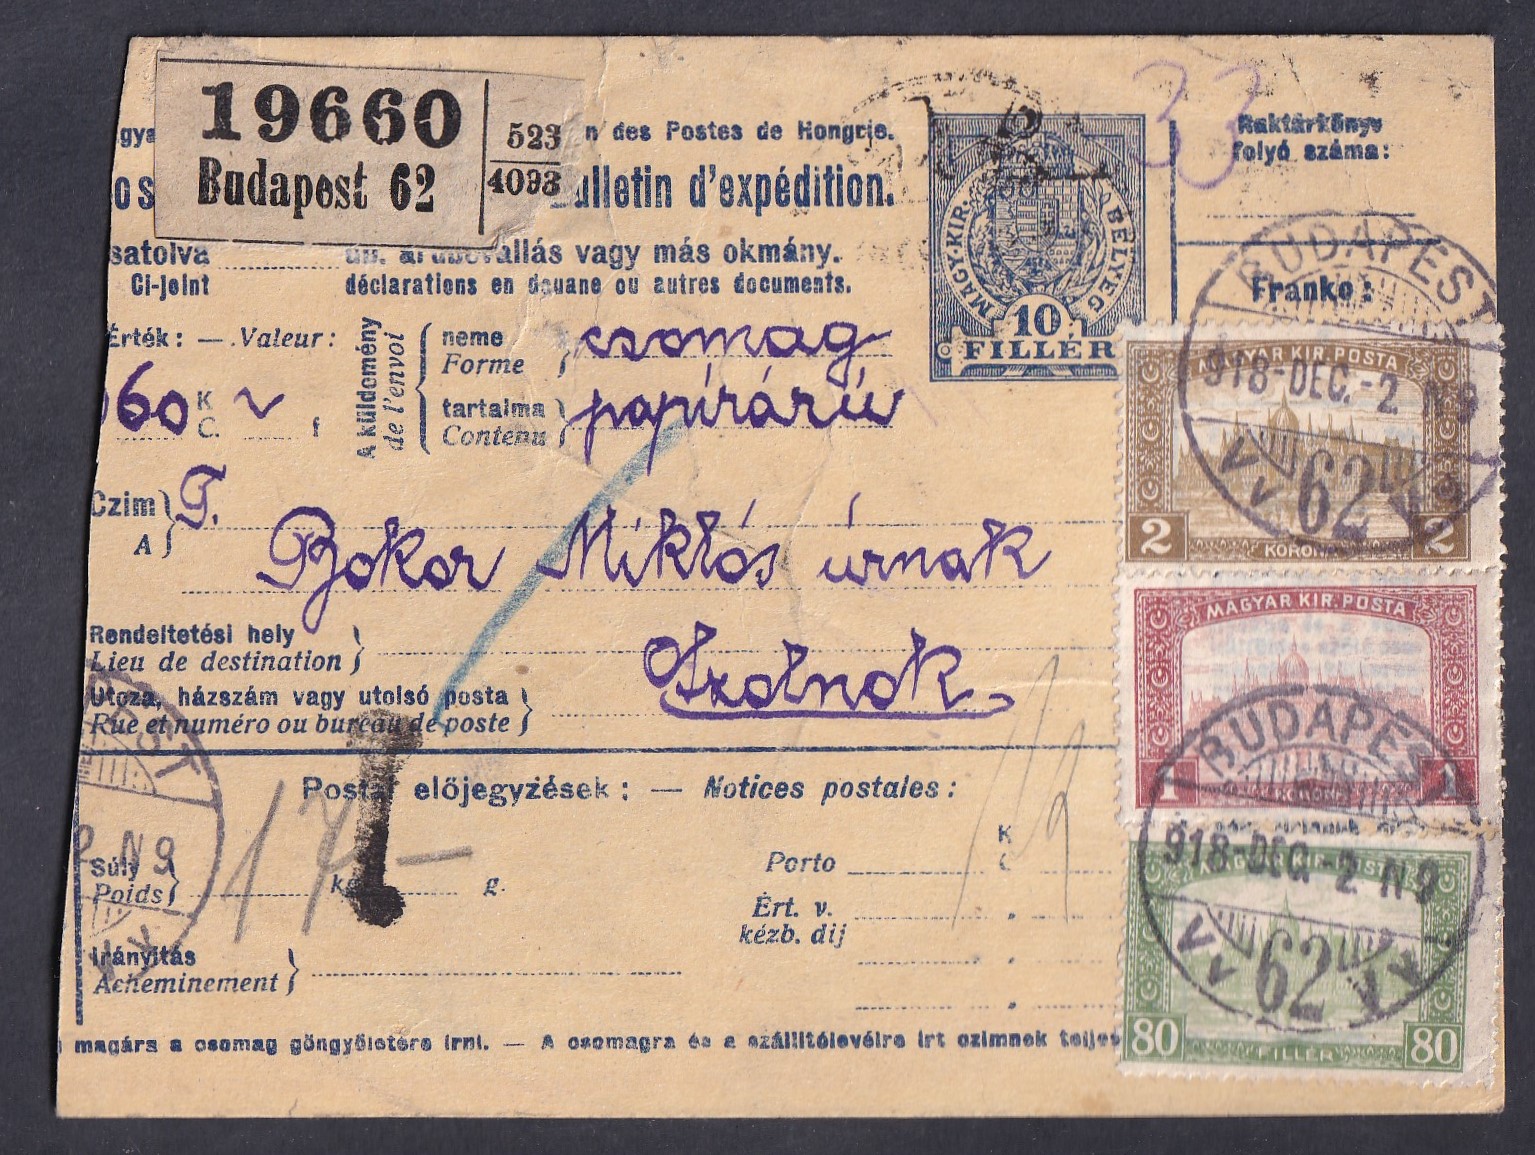 19660
Budapest 62
523
4093
n des Postes de Hongrie.
ulletin d'expédition.
satolva
vallás vagy más okmány.
Ci-joint
déclarations en douane ou autres documents.
MAGY. KIR. BÉLYEG
10
FILLÉR
33
Raktárkönyv
folyó száma:
Franko:
Érték: — Valeur:
60 K
C. f
A küldemény
de l'envoi
neme
Forme
csomag
tartalma
Contenu
papíráru
Czim
A
T.
Bokor Miklós úrnak
Rendeltetési hely
Lieu de destination
Szolnok
Utcza, házszám vagy utolsó posta
Rue et numéro ou bureau de poste
Postai előjegyzések: — Notices postales:
Súly
Poids
17 —
g.
K
Porto
Ért. v.
kézb. dij
Irányitás
Acheminement
magára a csomag göngyöletére irni. — A csomagra és a szállitólevélre irt czimnek teljes
MAGYAR KIR. POSTA
2 KORONA 2
BUDAPEST
918-DEC.-2. N9
62
MAGYAR KIR. POSTA
1 KORONA 1
BUDAPEST
918-DEC.-2 N9
62
MAGYAR KIR. POSTA
80 FILLÉR 80